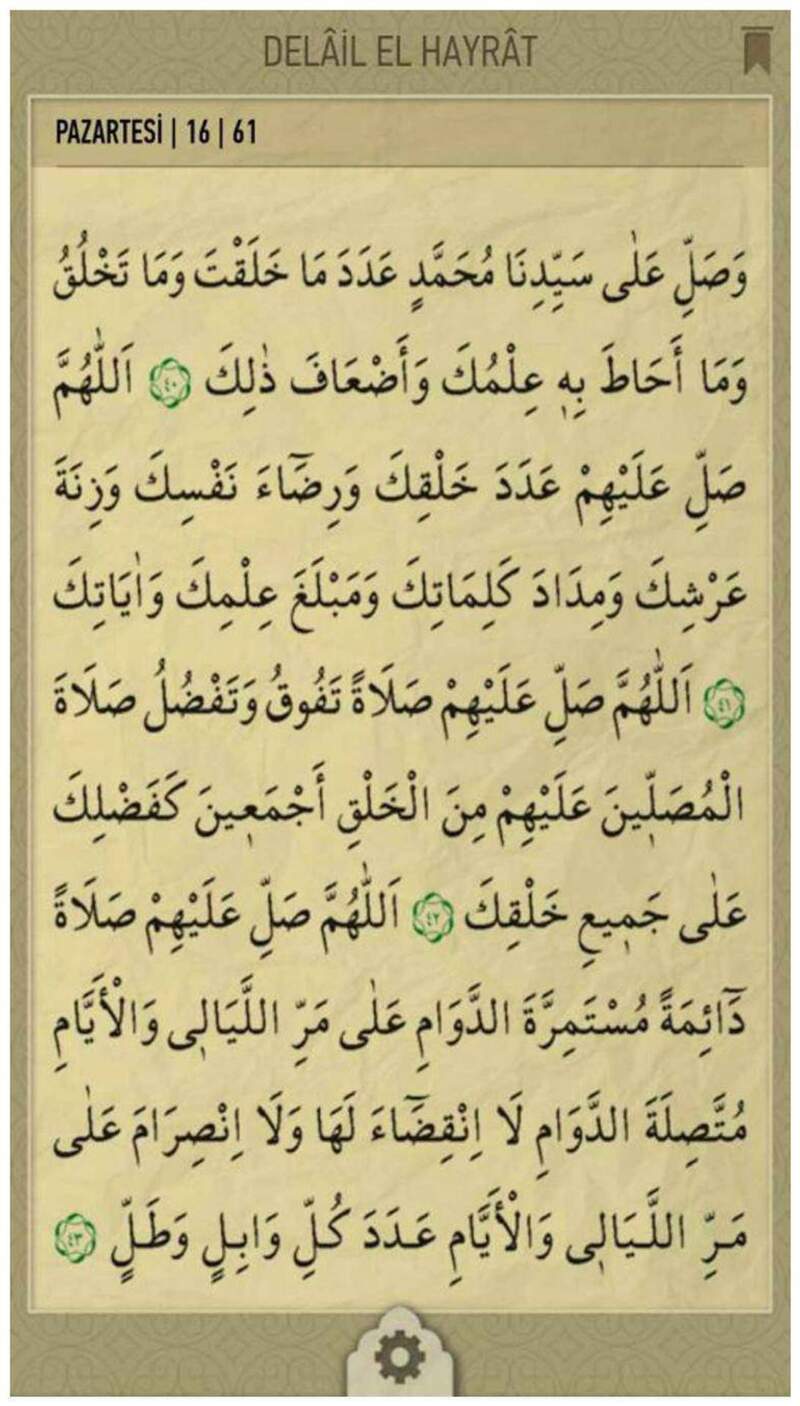 DELÂİL EL HAYRÂT
PAZARTESİ | 16 | 61
وَصَلِّ عَلٰى سَيِّدِنَا مُحَمَّدٍ عَدَدَ مَا خَلَقْتَ وَمَا تَخْلُقُ
وَمَا أَحَاطَ بِهٖ عِلْمُكَ وَأَضْعَافَ ذٰلِكَ ٤٠ اَللّٰهُمَّ
صَلِّ عَلَيْهِمْ عَدَدَ خَلْقِكَ وَرِضَٓاءَ نَفْسِكَ وَزِنَةَ
عَرْشِكَ وَمِدَادَ كَلِمَاتِكَ وَمَبْلَغَ عِلْمِكَ وَاٰيَاتِكَ
٤١ اَللّٰهُمَّ صَلِّ عَلَيْهِمْ صَلَاةً تَفُوقُ وَتَفْضُلُ صَلَاةَ
الْمُصَلّٖينَ عَلَيْهِمْ مِنَ الْخَلْقِ أَجْمَعٖينَ كَفَضْلِكَ
عَلٰى جَمٖيعِ خَلْقِكَ ٤٢ اَللّٰهُمَّ صَلِّ عَلَيْهِمْ صَلَاةً
دَٓائِمَةً مُسْتَمِرَّةَ الدَّوَامِ عَلٰى مَرِّ اللَّيَالٖى وَالْأَيَّامِ
مُتَّصِلَةَ الدَّوَامِ لَا اِنْقِضَٓاءَ لَهَا وَلَا اِنْصِرَامَ عَلٰى
مَرِّ اللَّيَالٖى وَالْأَيَّامِ عَدَدَ كُلِّ وَابِلٍ وَطَلٍّ ٤٣